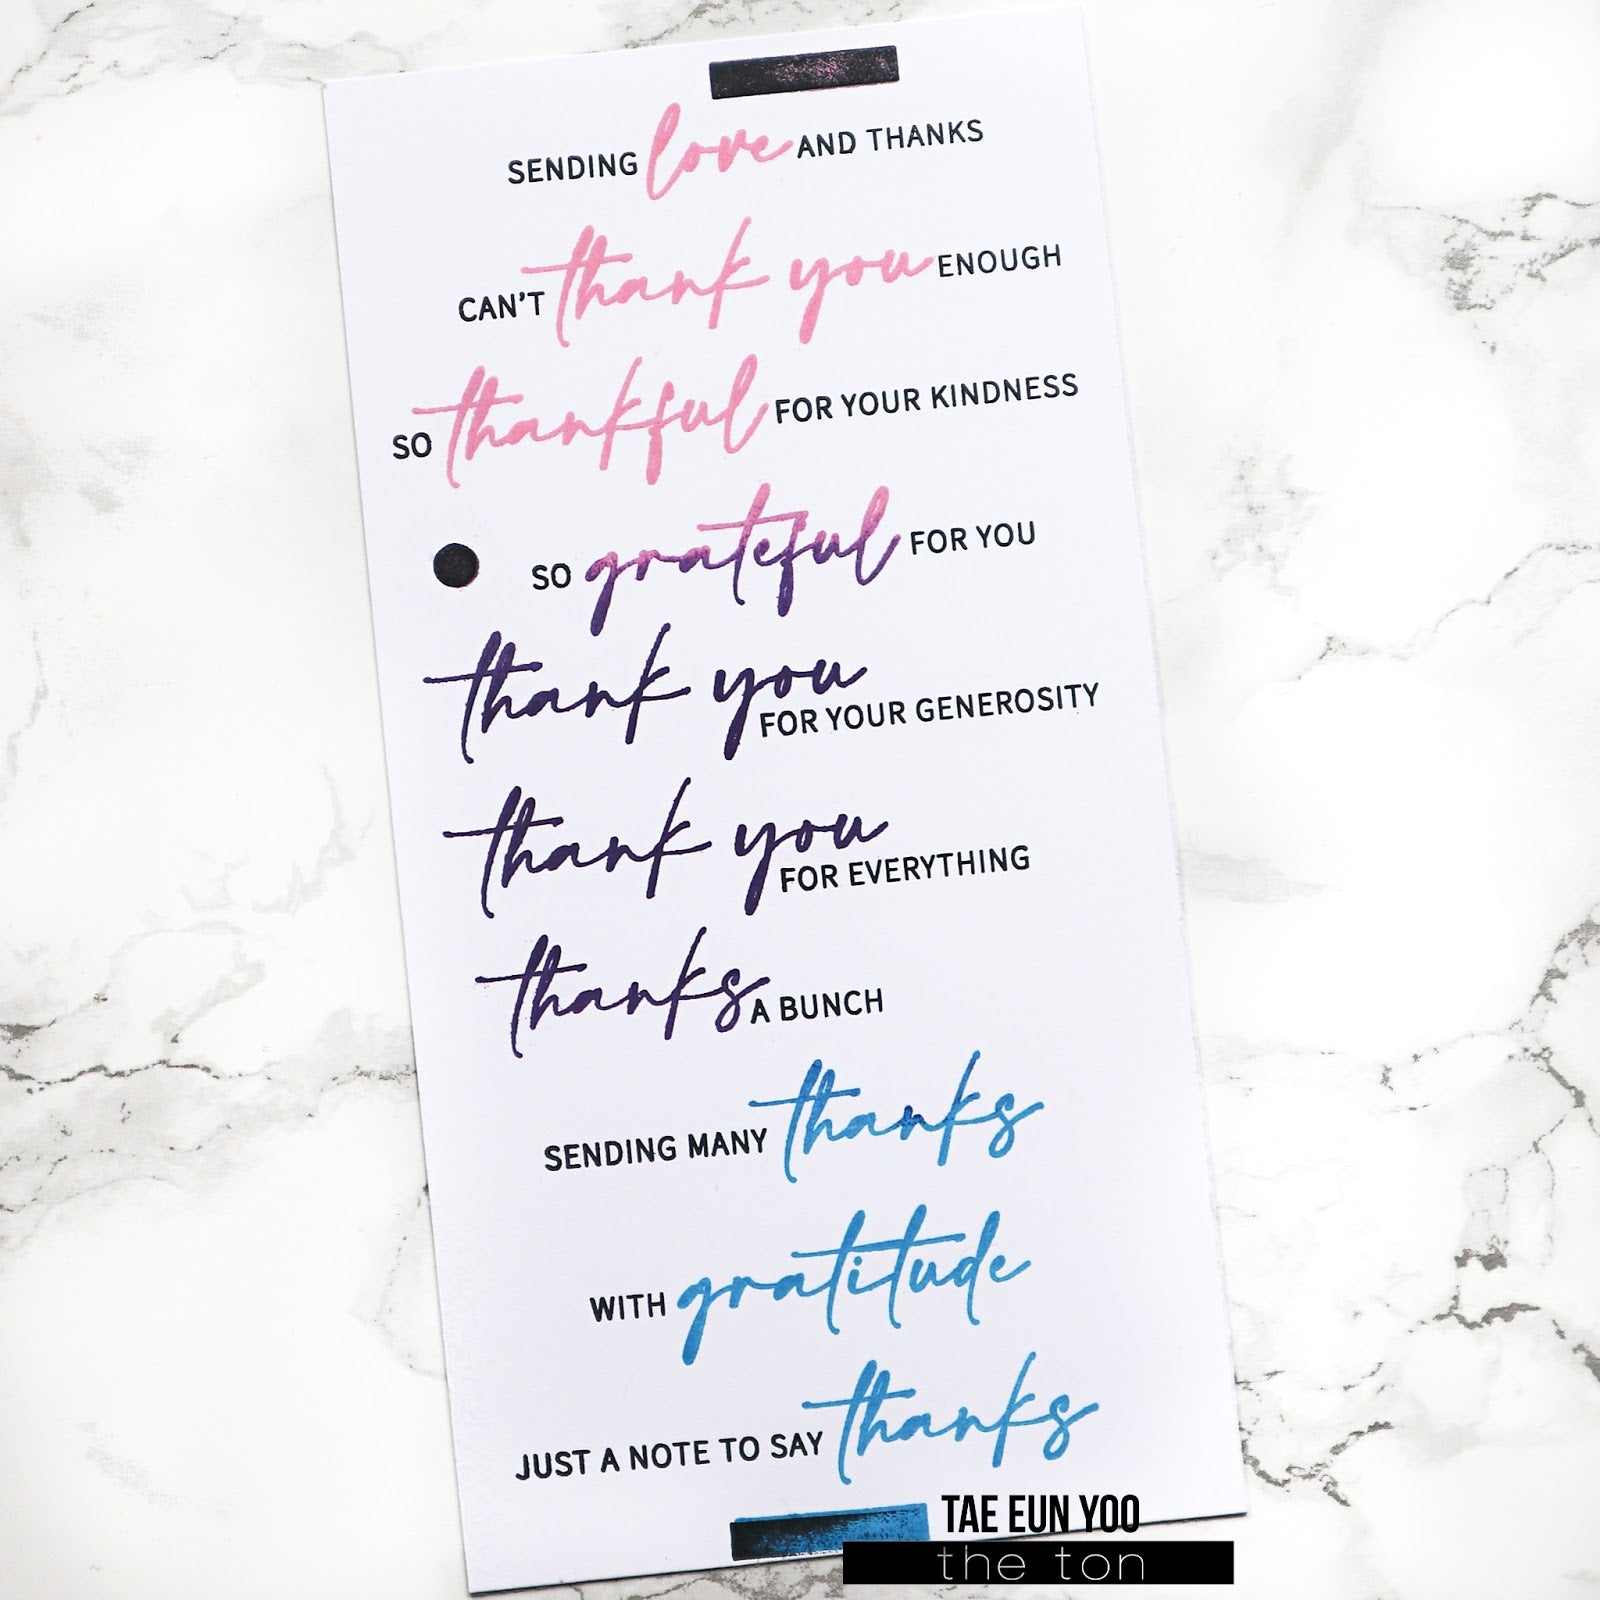 SENDING love AND THANKS
CAN'T thank you ENOUGH
SO thankful FOR YOUR KINDNESS
SO grateful FOR YOU
thank you FOR YOUR GENEROSITY
thank you FOR EVERYTHING
thanks A BUNCH
SENDING MANY thanks
WITH gratitude
JUST A NOTE TO SAY thanks
TAE EUN YOO
the ton